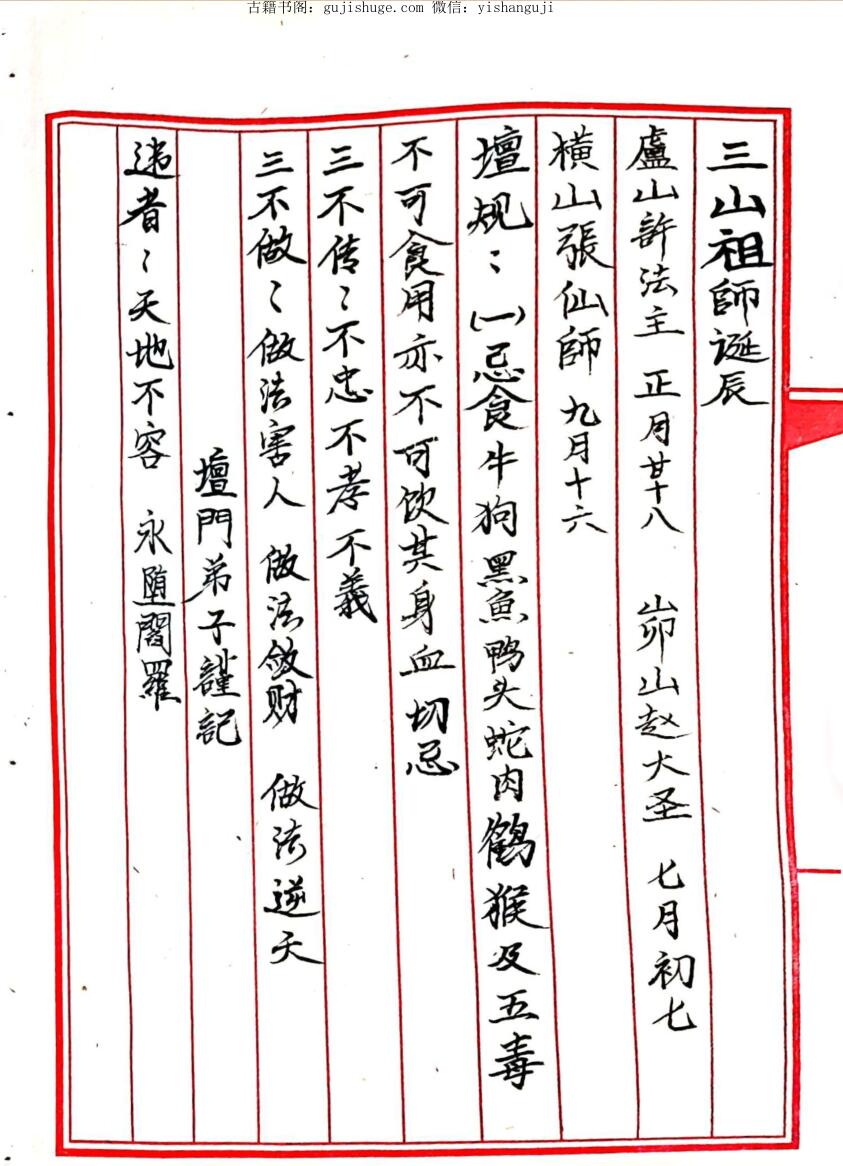 古籍书阁：gujishuge.com 微信：yishanguji
三山祖師诞辰
盧山許法主 正月廿十八 山卯山赵大圣 七月初七
橫山張仙師 九月十六
壇规：(一)忌食牛狗黑魚鸭头蛇肉鶴猴及五毒
不可食用亦不可饮其身血切忌
三不传：不忠不孝不義
三不做：做法害人 做法敛财 做法逆天
壇門弟子謹記
违者：天地不容 永堕閻羅